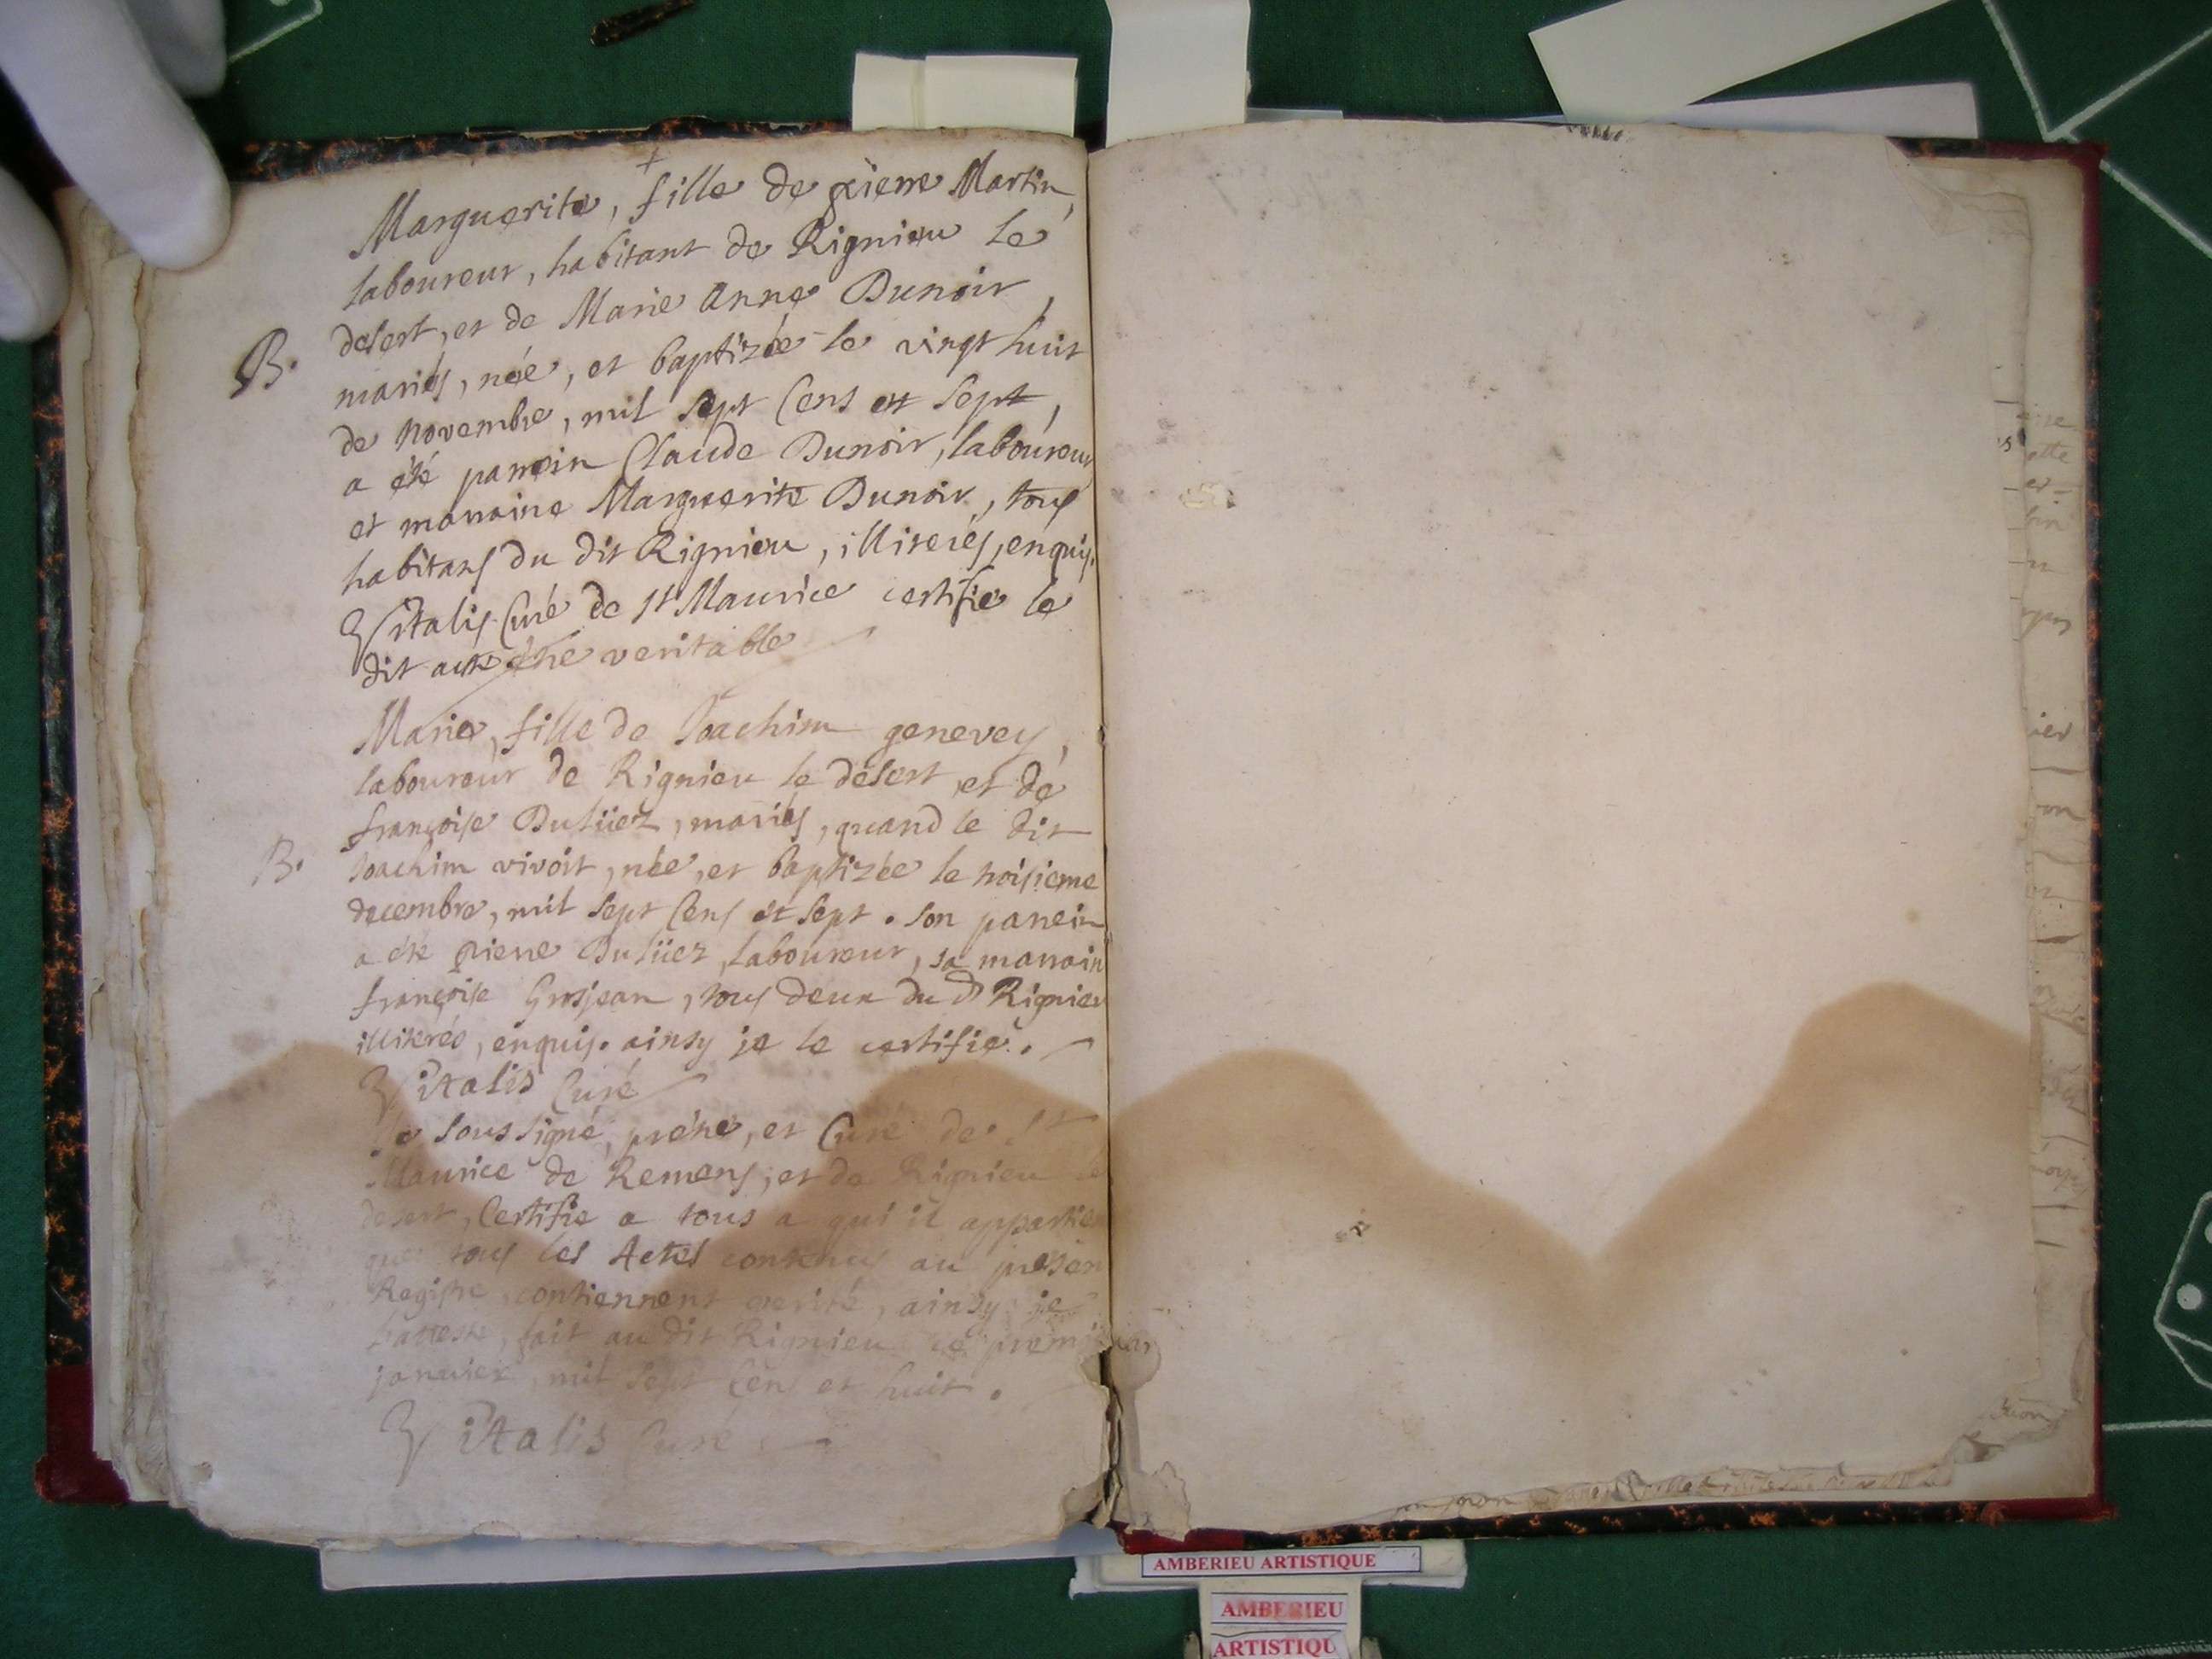 +
Marguerite, fille de pierre Martin,
laboureur, habitant de Rignieu le
desert, et de Marie Anne Dunoir,
B. mariés, née, et baptizée le vingt huit
de novembre, mil sept Cens et sept,
a été parrein Claude Dunoir, laboureur
et marraine Marguerite Dunoir, tous
habitans du dit Rignieu, illiterés, enquis.
Vitalis Curé de st Maurice certifie le
dit acte étre veritable
Marie, fille de Joachim genevey,
laboureur de Rignieu le désert, et de
françoise Dutüez, mariés, quand le dit
B. Joachim vivoit, née, et baptizée le troisieme
decembre, mil sept Cens et sept. son parrein
a été pierre Dutüez, laboureur, sa marrain
françoise Grosjean, tous deux du dt Rignieu
illiterés, enquis. ainsy je le certifie.
Vitalis Curé
Je soussigné, prétre, et Curé de St
Maurice de Remens, et de Rignieu le
desert, Certifie a tous a qui il appartien
que tous les Actes contenus au presen
Registre, contiennent verité, ainsy je
l'atteste, fait au dit Rignieu ce premier
janvier, mil sept Cens et huit.
Vitalis Curé
AMBERIEU ARTISTIQUE
AMBERIEU
ARTISTIQU